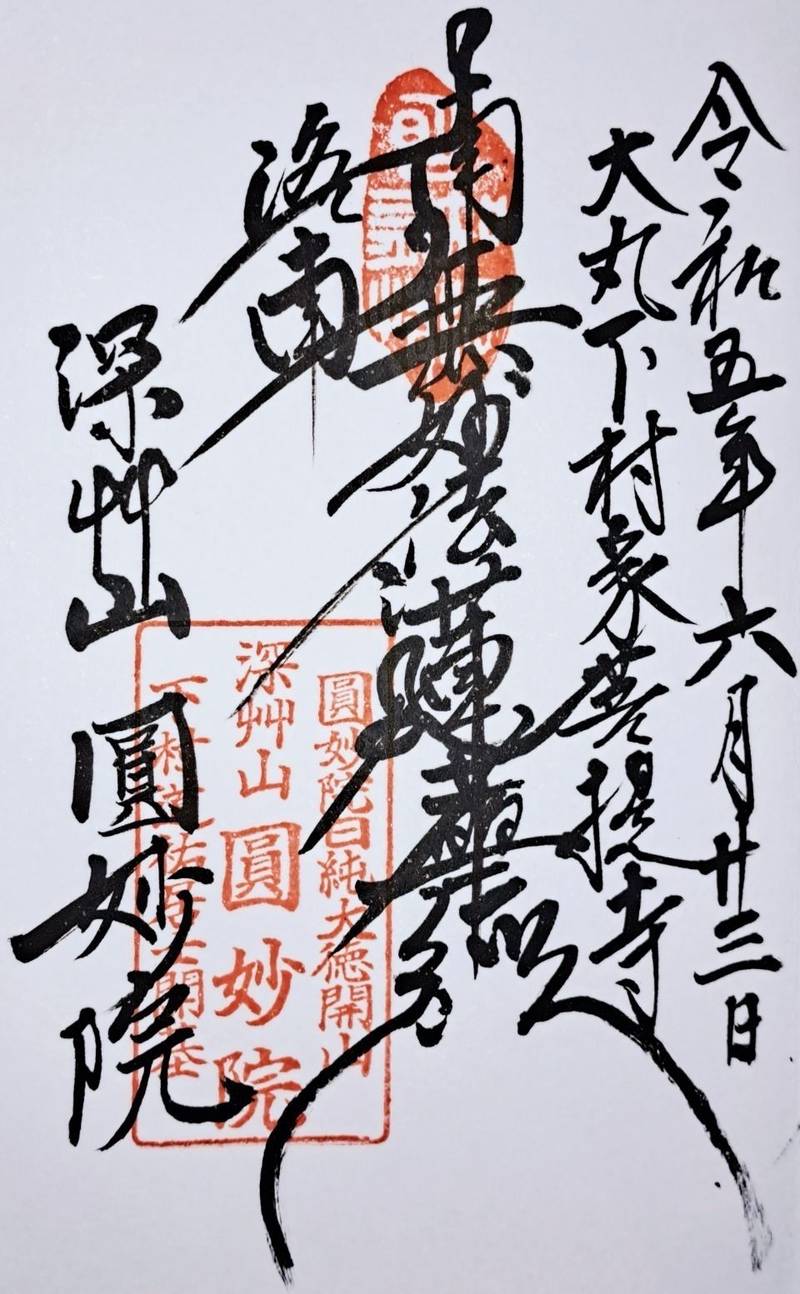 令和五年六月廿三日
大丸下村家菩提寺
南無妙法蓮華経
洛南
深艸山 圓妙院
圓妙院日純大徳開山
深艸山圓妙院